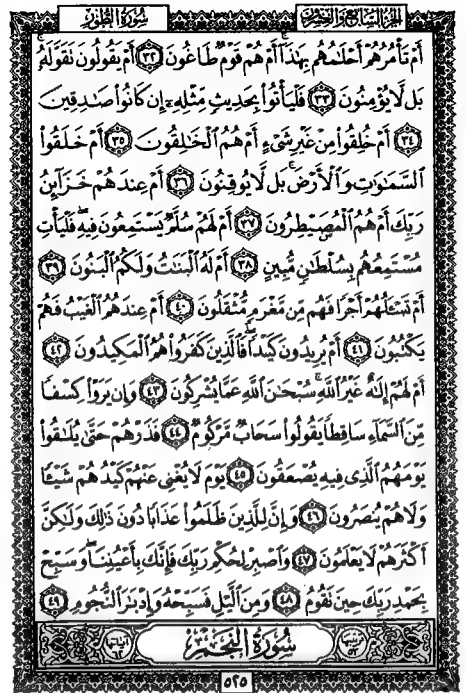 سُورَةُ الطُّورِ
الجزء السابع والعشرون
أَمْ تَأْمُرُهُمْ أَحْلَامُهُم بِهَٰذَا ۚ أَمْ هُمْ قَوْمٌ طَاغُونَ ٣٢ أَمْ يَقُولُونَ تَقَوَّلَهُ
بَل لَّا يُؤْمِنُونَ ٣٣ فَلْيَأْتُوا بِحَدِيثٍ مِّثْلِهِ إِن كَانُوا صَادِقِينَ
٣٤ أَمْ خُلِقُوا مِنْ غَيْرِ شَيْءٍ أَمْ هُمُ الْخَالِقُونَ ٣٥ أَمْ خَلَقُوا
السَّمَاوَاتِ وَالْأَرْضَ ۚ بَل لَّا يُوقِنُونَ ٣٦ أَمْ عِندَهُمْ خَزَائِنُ
رَبِّكَ أَمْ هُمُ الْمُصَيْطِرُونَ ٣٧ أَمْ لَهُمْ سُلَّمٌ يَسْتَمِعُونَ فِيهِ ۖ فَلْيَأْتِ
مُسْتَمِعُهُم بِسُلْطَانٍ مُّبِينٍ ٣٨ أَمْ لَهُ الْبَنَاتُ وَلَكُمُ الْبَنُونَ ٣٩
أَمْ تَسْأَلُهُمْ أَجْرًا فَهُم مِّن مَّغْرَمٍ مُّثْقَلُونَ ٤٠ أَمْ عِندَهُمُ الْغَيْبُ فَهُمْ
يَكْتُبُونَ ٤١ أَمْ يُرِيدُونَ كَيْدًا ۖ فَالَّذِينَ كَفَرُوا هُمُ الْمَكِيدُونَ ٤٢
أَمْ لَهُمْ إِلَٰهٌ غَيْرُ اللَّهِ ۚ سُبْحَانَ اللَّهِ عَمَّا يُشْرِكُونَ ٤٣ وَإِن يَرَوْا كِسْفًا
مِّنَ السَّمَاءِ سَاقِطًا يَقُولُوا سَحَابٌ مَّرْكُومٌ ٤٤ فَذَرْهُمْ حَتَّىٰ يُلَاقُوا
يَوْمَهُمُ الَّذِي فِيهِ يُصْعَقُونَ ٤٥ يَوْمَ لَا يُغْنِي عَنْهُمْ كَيْدُهُمْ شَيْئًا
وَلَا هُمْ يُنصَرُونَ ٤٦ وَإِنَّ لِلَّذِينَ ظَلَمُوا عَذَابًا دُونَ ذَٰلِكَ وَلَٰكِنَّ
أَكْثَرَهُمْ لَا يَعْلَمُونَ ٤٧ وَاصْبِرْ لِحُكْمِ رَبِّكَ فَإِنَّكَ بِأَعْيُنِنَا ۖ وَسَبِّحْ
بِحَمْدِ رَبِّكَ حِينَ تَقُومُ ٤٨ وَمِنَ اللَّيْلِ فَسَبِّحْهُ وَإِدْبَارَ النُّجُومِ ٤٩
ترتيبها ٥٣
سُورَةُ النَّجْمِ
آياتها ٦٢
٥٢٥